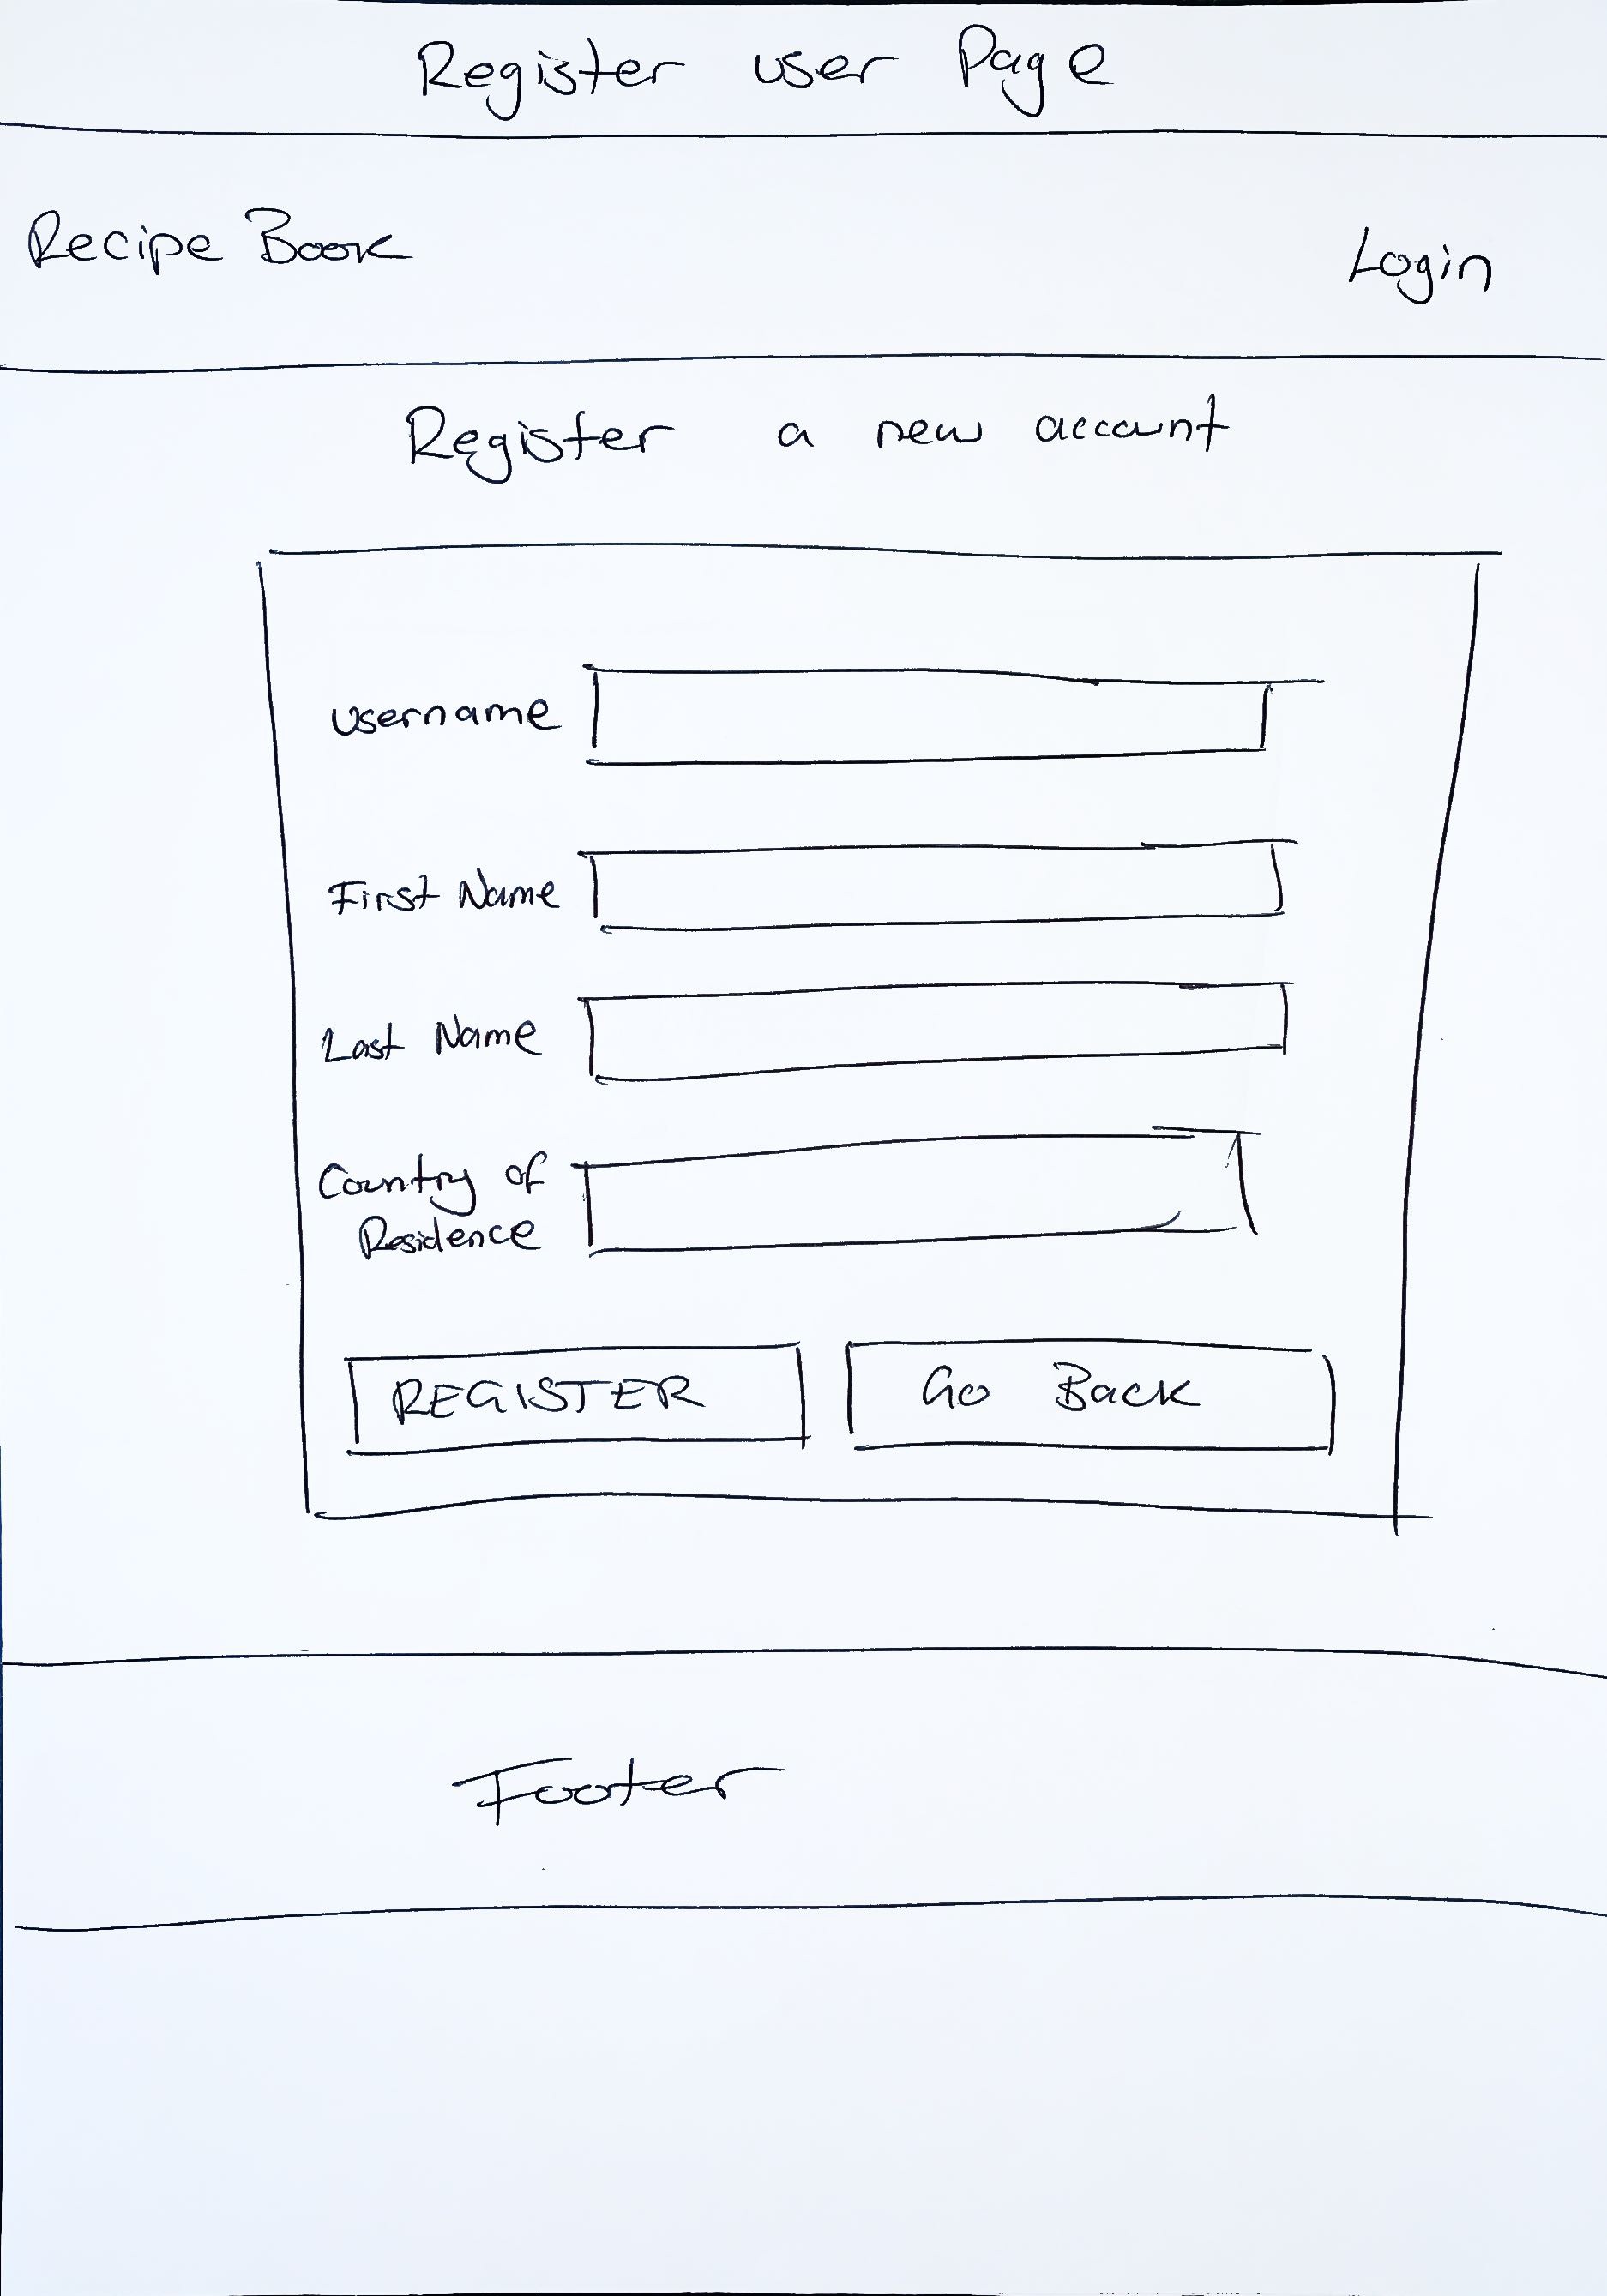 Register user Page
Recipe Book
Login
Register a new account
username
First Name
Last Name
Country of
Residence
REGISTER
Go Back
Footer